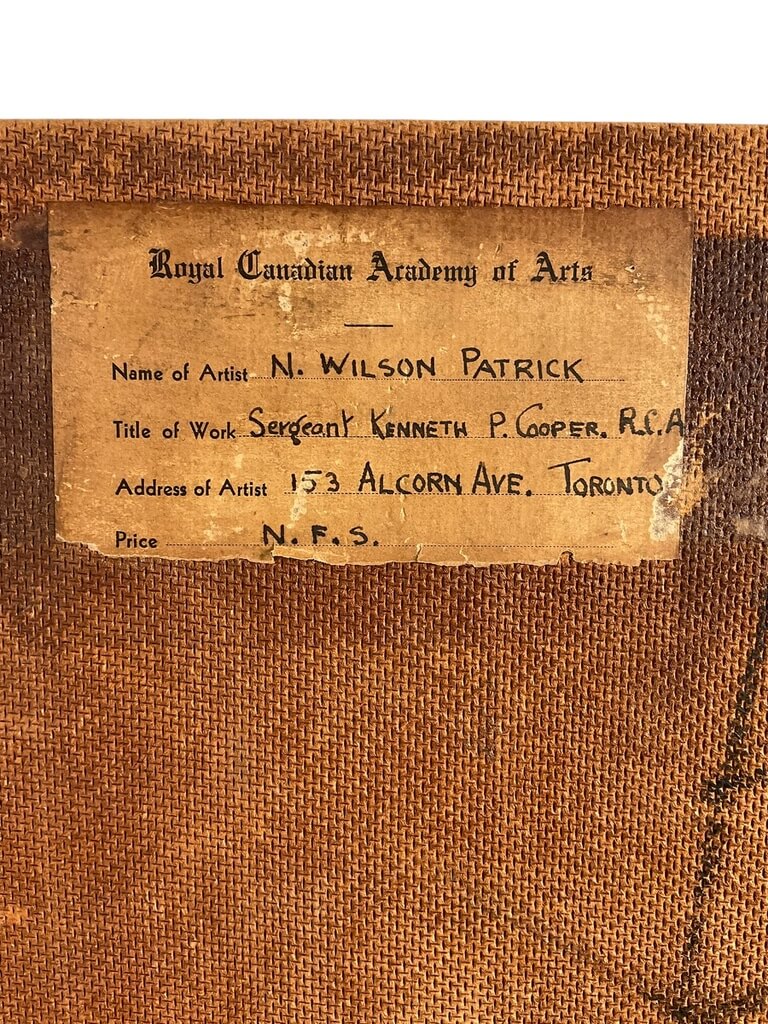 Royal Canadian Academy of Arts
Name of Artist N. WILSON PATRICK
Title of Work Sergeant KENNETH P. COOPER. R.C.A
Address of Artist 153 ALCORN AVE. TORONTO
Price N. F. S.